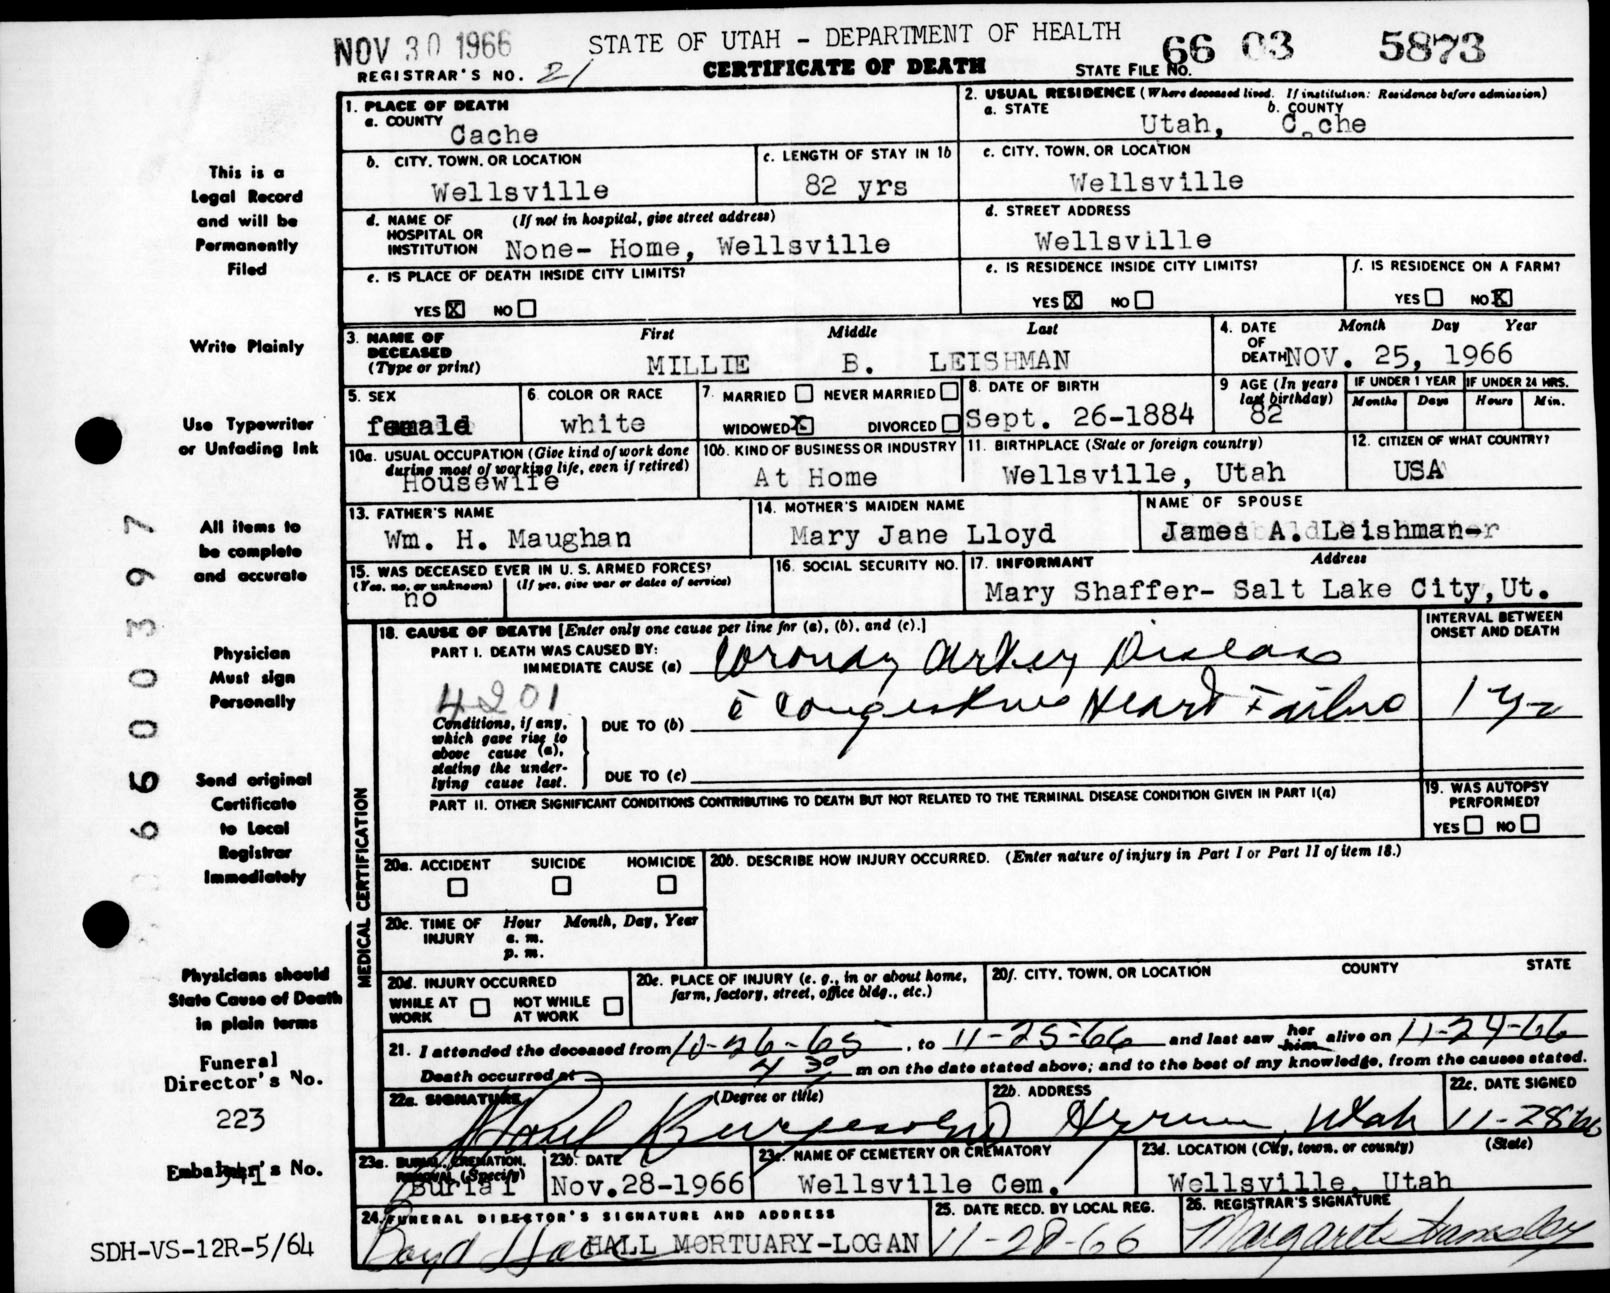 NOV 30 1966
STATE OF UTAH - DEPARTMENT OF HEALTH
66 03 5873
REGISTRAR'S NO. 21
CERTIFICATE OF DEATH
STATE FILE NO.
1. PLACE OF DEATH
a. COUNTY
Cache
2. USUAL RESIDENCE (Where deceased lived. If institution: Residence before admission)
a. STATE
b. COUNTY
Utah, C che
b. CITY, TOWN, OR LOCATION
Wellsville
c. LENGTH OF STAY IN 1b
82 yrs
c. CITY, TOWN, OR LOCATION
Wellsville
d. NAME OF HOSPITAL OR INSTITUTION
(If not in hospital, give street address)
None- Home, Wellsville
d. STREET ADDRESS
Wellsville
e. IS PLACE OF DEATH INSIDE CITY LIMITS?
YES X NO
e. IS RESIDENCE INSIDE CITY LIMITS?
YES X NO
f. IS RESIDENCE ON A FARM?
YES NO X
3. NAME OF DECEASED (Type or print)
First Middle Last
MILLIE B. LEISHMAN
4. DATE OF DEATH
Month Day Year
NOV. 25, 1966
5. SEX
female
6. COLOR OR RACE
white
7. MARRIED NEVER MARRIED
WIDOWED X DIVORCED
8. DATE OF BIRTH
Sept. 26-1884
9 AGE (In years last birthday)
82
IF UNDER 1 YEAR
Months Days
IF UNDER 24 HRS.
Hours Min.
10a. USUAL OCCUPATION (Give kind of work done during most of working life, even if retired)
Housewife
10b. KIND OF BUSINESS OR INDUSTRY
At Home
11. BIRTHPLACE (State or foreign country)
Wellsville, Utah
12. CITIZEN OF WHAT COUNTRY?
USA
13. FATHER'S NAME
Wm. H. Maughan
14. MOTHER'S MAIDEN NAME
Mary Jane Lloyd
NAME OF SPOUSE
James A. Leishman
15. WAS DECEASED EVER IN U. S. ARMED FORCES?
(Yes, no, or unknown) (If yes, give war or dates of service)
no
16. SOCIAL SECURITY NO.
17. INFORMANT Address
Mary Shaffer- Salt Lake City, Ut.
MEDICAL CERTIFICATION
18. CAUSE OF DEATH [Enter only one cause per line for (a), (b), and (c).]
INTERVAL BETWEEN ONSET AND DEATH
PART I. DEATH WAS CAUSED BY:
IMMEDIATE CAUSE (a) Coronary Artery Disease
4201
Conditions, if any, which gave rise to above cause (a), stating the underlying cause last.
DUE TO (b) c̄ Congestive Heart Failure 1 yr
DUE TO (c)
PART II. OTHER SIGNIFICANT CONDITIONS CONTRIBUTING TO DEATH BUT NOT RELATED TO THE TERMINAL DISEASE CONDITION GIVEN IN PART I(a)
19. WAS AUTOPSY PERFORMED?
YES NO
20a. ACCIDENT SUICIDE HOMICIDE
20b. DESCRIBE HOW INJURY OCCURRED. (Enter nature of injury in Part I or Part II of item 18.)
20c. TIME OF INJURY
Hour Month, Day, Year
a. m.
p. m.
20d. INJURY OCCURRED
WHILE AT WORK NOT WHILE AT WORK
20e. PLACE OF INJURY (e. g., in or about home, farm, factory, street, office bldg., etc.)
20f. CITY, TOWN, OR LOCATION COUNTY STATE
21. I attended the deceased from 10-26-65, to 11-25-66 and last saw her him alive on 11-24-66
Death occurred at 4 30 m on the date stated above; and to the best of my knowledge, from the causes stated.
22a. SIGNATURE (Degree or title)
22b. ADDRESS
Hyrum, Utah
22c. DATE SIGNED
11-28-66
23a. BURIAL, CREMATION, REMOVAL (Specify)
Burial
23b. DATE
Nov.28-1966
23c. NAME OF CEMETERY OR CREMATORY
Wellsville Cem.
23d. LOCATION (City, town, or county) (State)
Wellsville, Utah
24. FUNERAL DIRECTOR'S SIGNATURE AND ADDRESS
Boyd Hall HALL MORTUARY-LOGAN
25. DATE RECD. BY LOCAL REG.
11-28-66
26. REGISTRAR'S SIGNATURE
Margaret
This is a
Legal Record
and will be
Permanently
Filed
Write Plainly
Use Typewriter
or Unfading Ink
All items to
be complete
and accurate
Physician
Must sign
Personally
Send original
Certificate
to Local
Registrar
Immediately
Physicians should
State Cause of Death
in plain terms
Funeral
Director's No.
223
Embalmer's No.
SDH-VS-12R-5/64